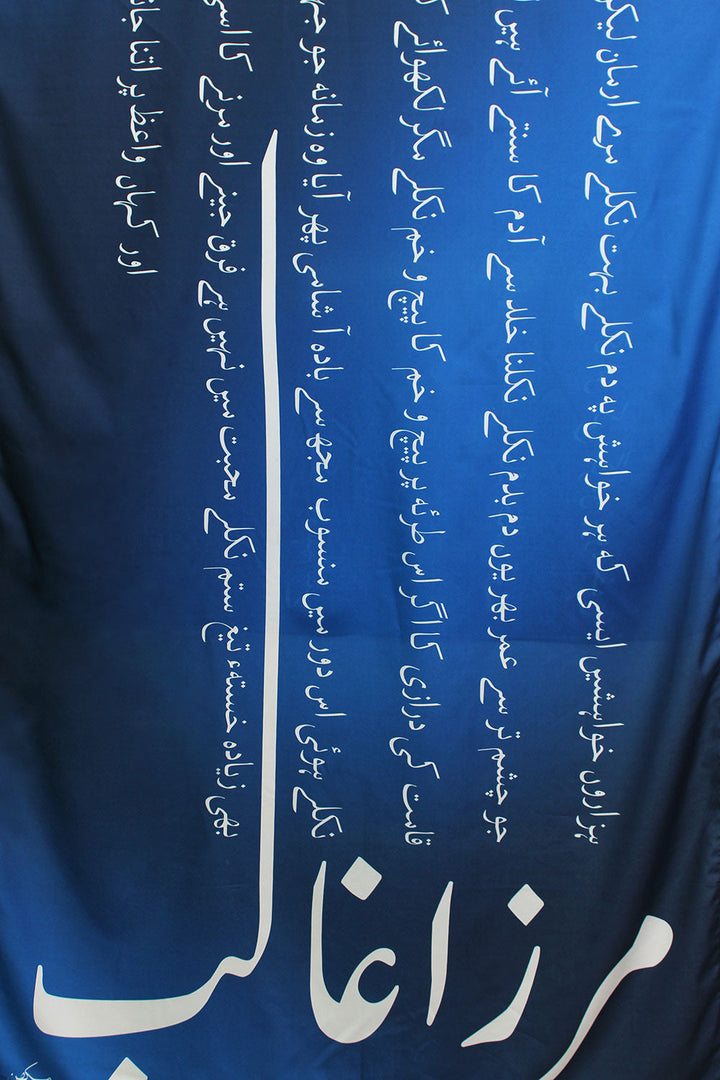 ہزاروں خواہشیں ایسی کہ ہر خواہش پہ دم نکلے بہت نکلے مرے ارمان
جو چشم تر سے عمر بھر یوں دم بدم نکلے نکلنا خلد سے آدم کا سنتے آئے ہیں
قامت کی درازی کا اگر اس طرئہ پر پیچ و خم کا پیچ و خم نکلے مگر لکھوائے
نکلے ہوئی اس دور میں منسوب مجھ سے بادہ آشامی پھر آیا وہ زمانہ جو
بھی زیادہ خستہء تیغ ستم نکلے محبت میں نہیں ہے فرق جینے اور مرنے کا
اور کہاں واعظ پر اتنا
مرزا غالب